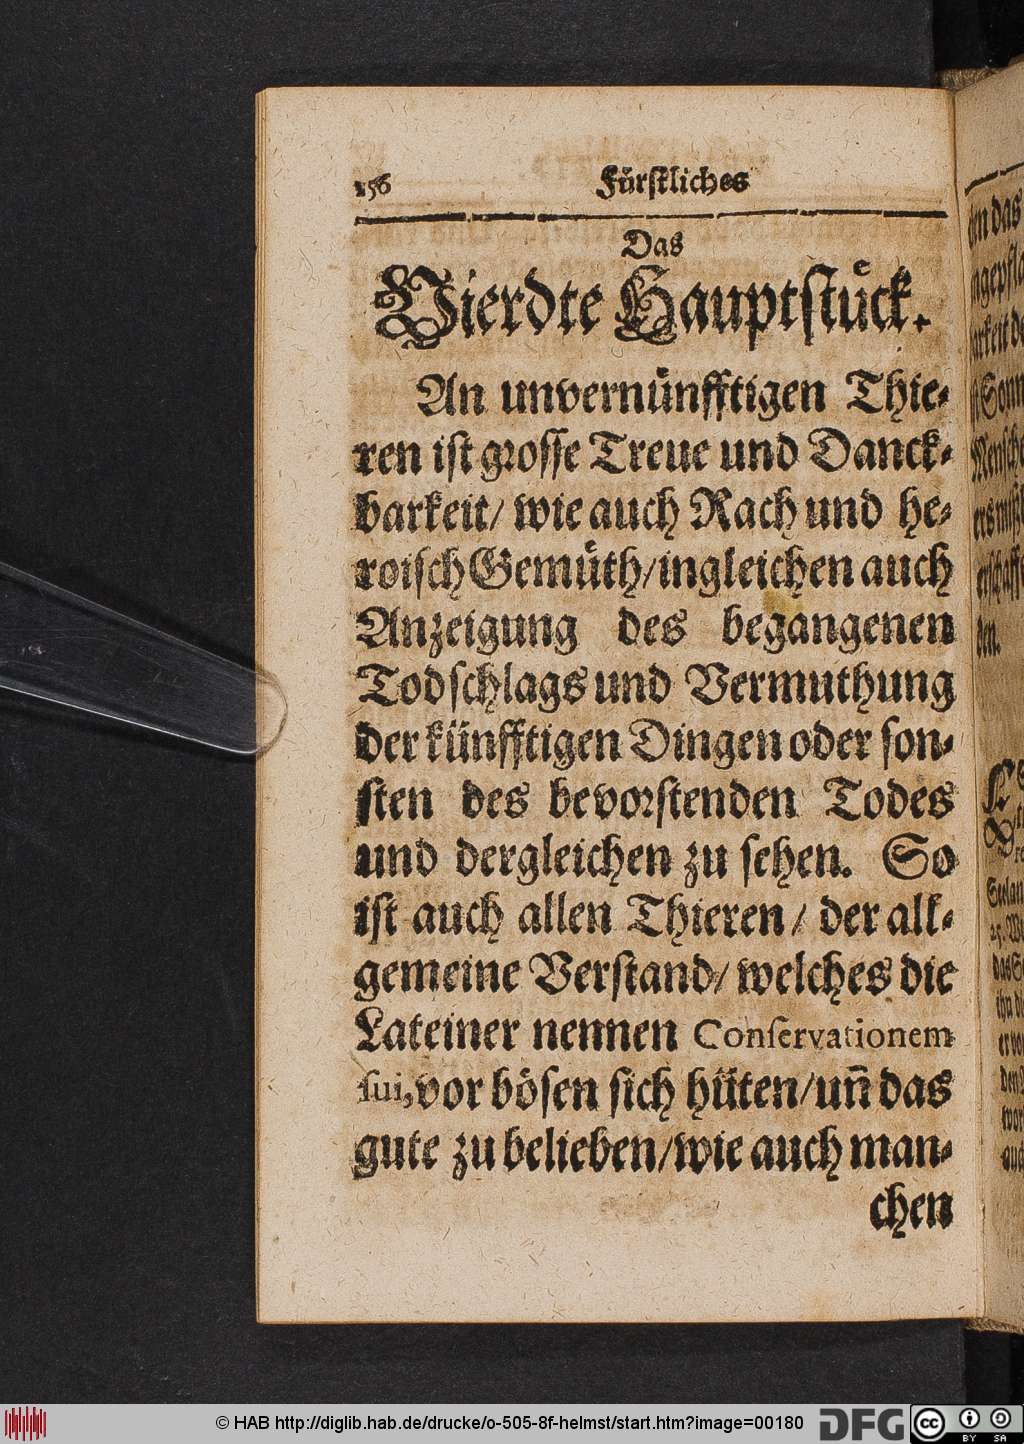 156 Fürstliches
Das
Vierdte Hauptstück.
An unvernünfftigen Thie-
ren ist grosse Treue und Danck-
barkeit/ wie auch Rach und he-
roisch Gemüth/ ingleichen auch
Anzeigung des begangenen
Todschlags und Vermuthung
der künfftigen Dingen oder son-
sten des bevorstenden Todes
und dergleichen zu sehen. So
ist auch allen Thieren/ der all-
gemeine Verstand/ welches die
Lateiner nennen Conservationem
sui, vor bösen sich hüten/ uñ das
gute zu belieben/ wie auch man-
chen
den.
© HAB http://diglib.hab.de/drucke/o-505-8f-helmst/start.htm?image=00180 DFG cc BY SA